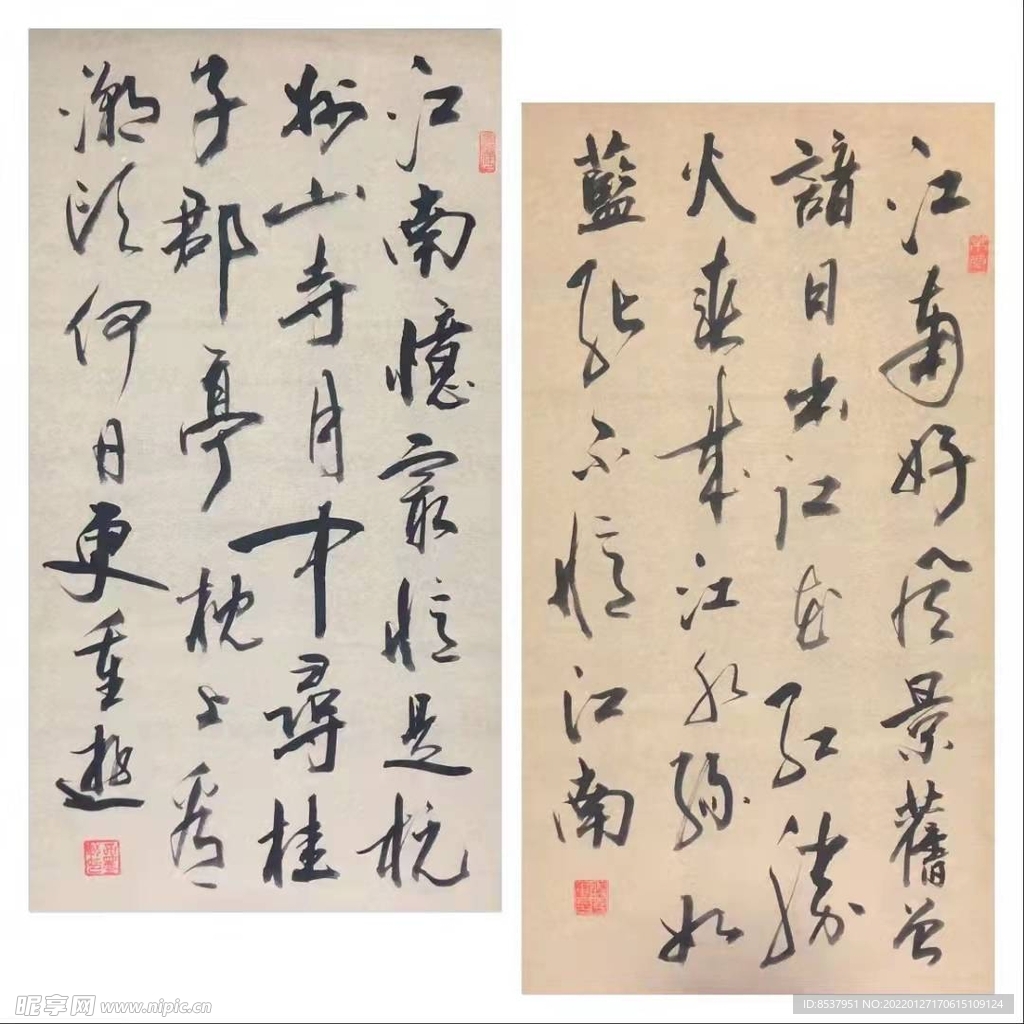 江南好風景舊曾
諳日出江花紅勝
火春來江水綠如
藍能不憶江南
江南憶最憶是杭
州山寺月中尋桂
子郡亭枕上看
潮頭何日更重遊
昵享网 www.nipic.cn
ID:8537951 NO:20220127170615109124